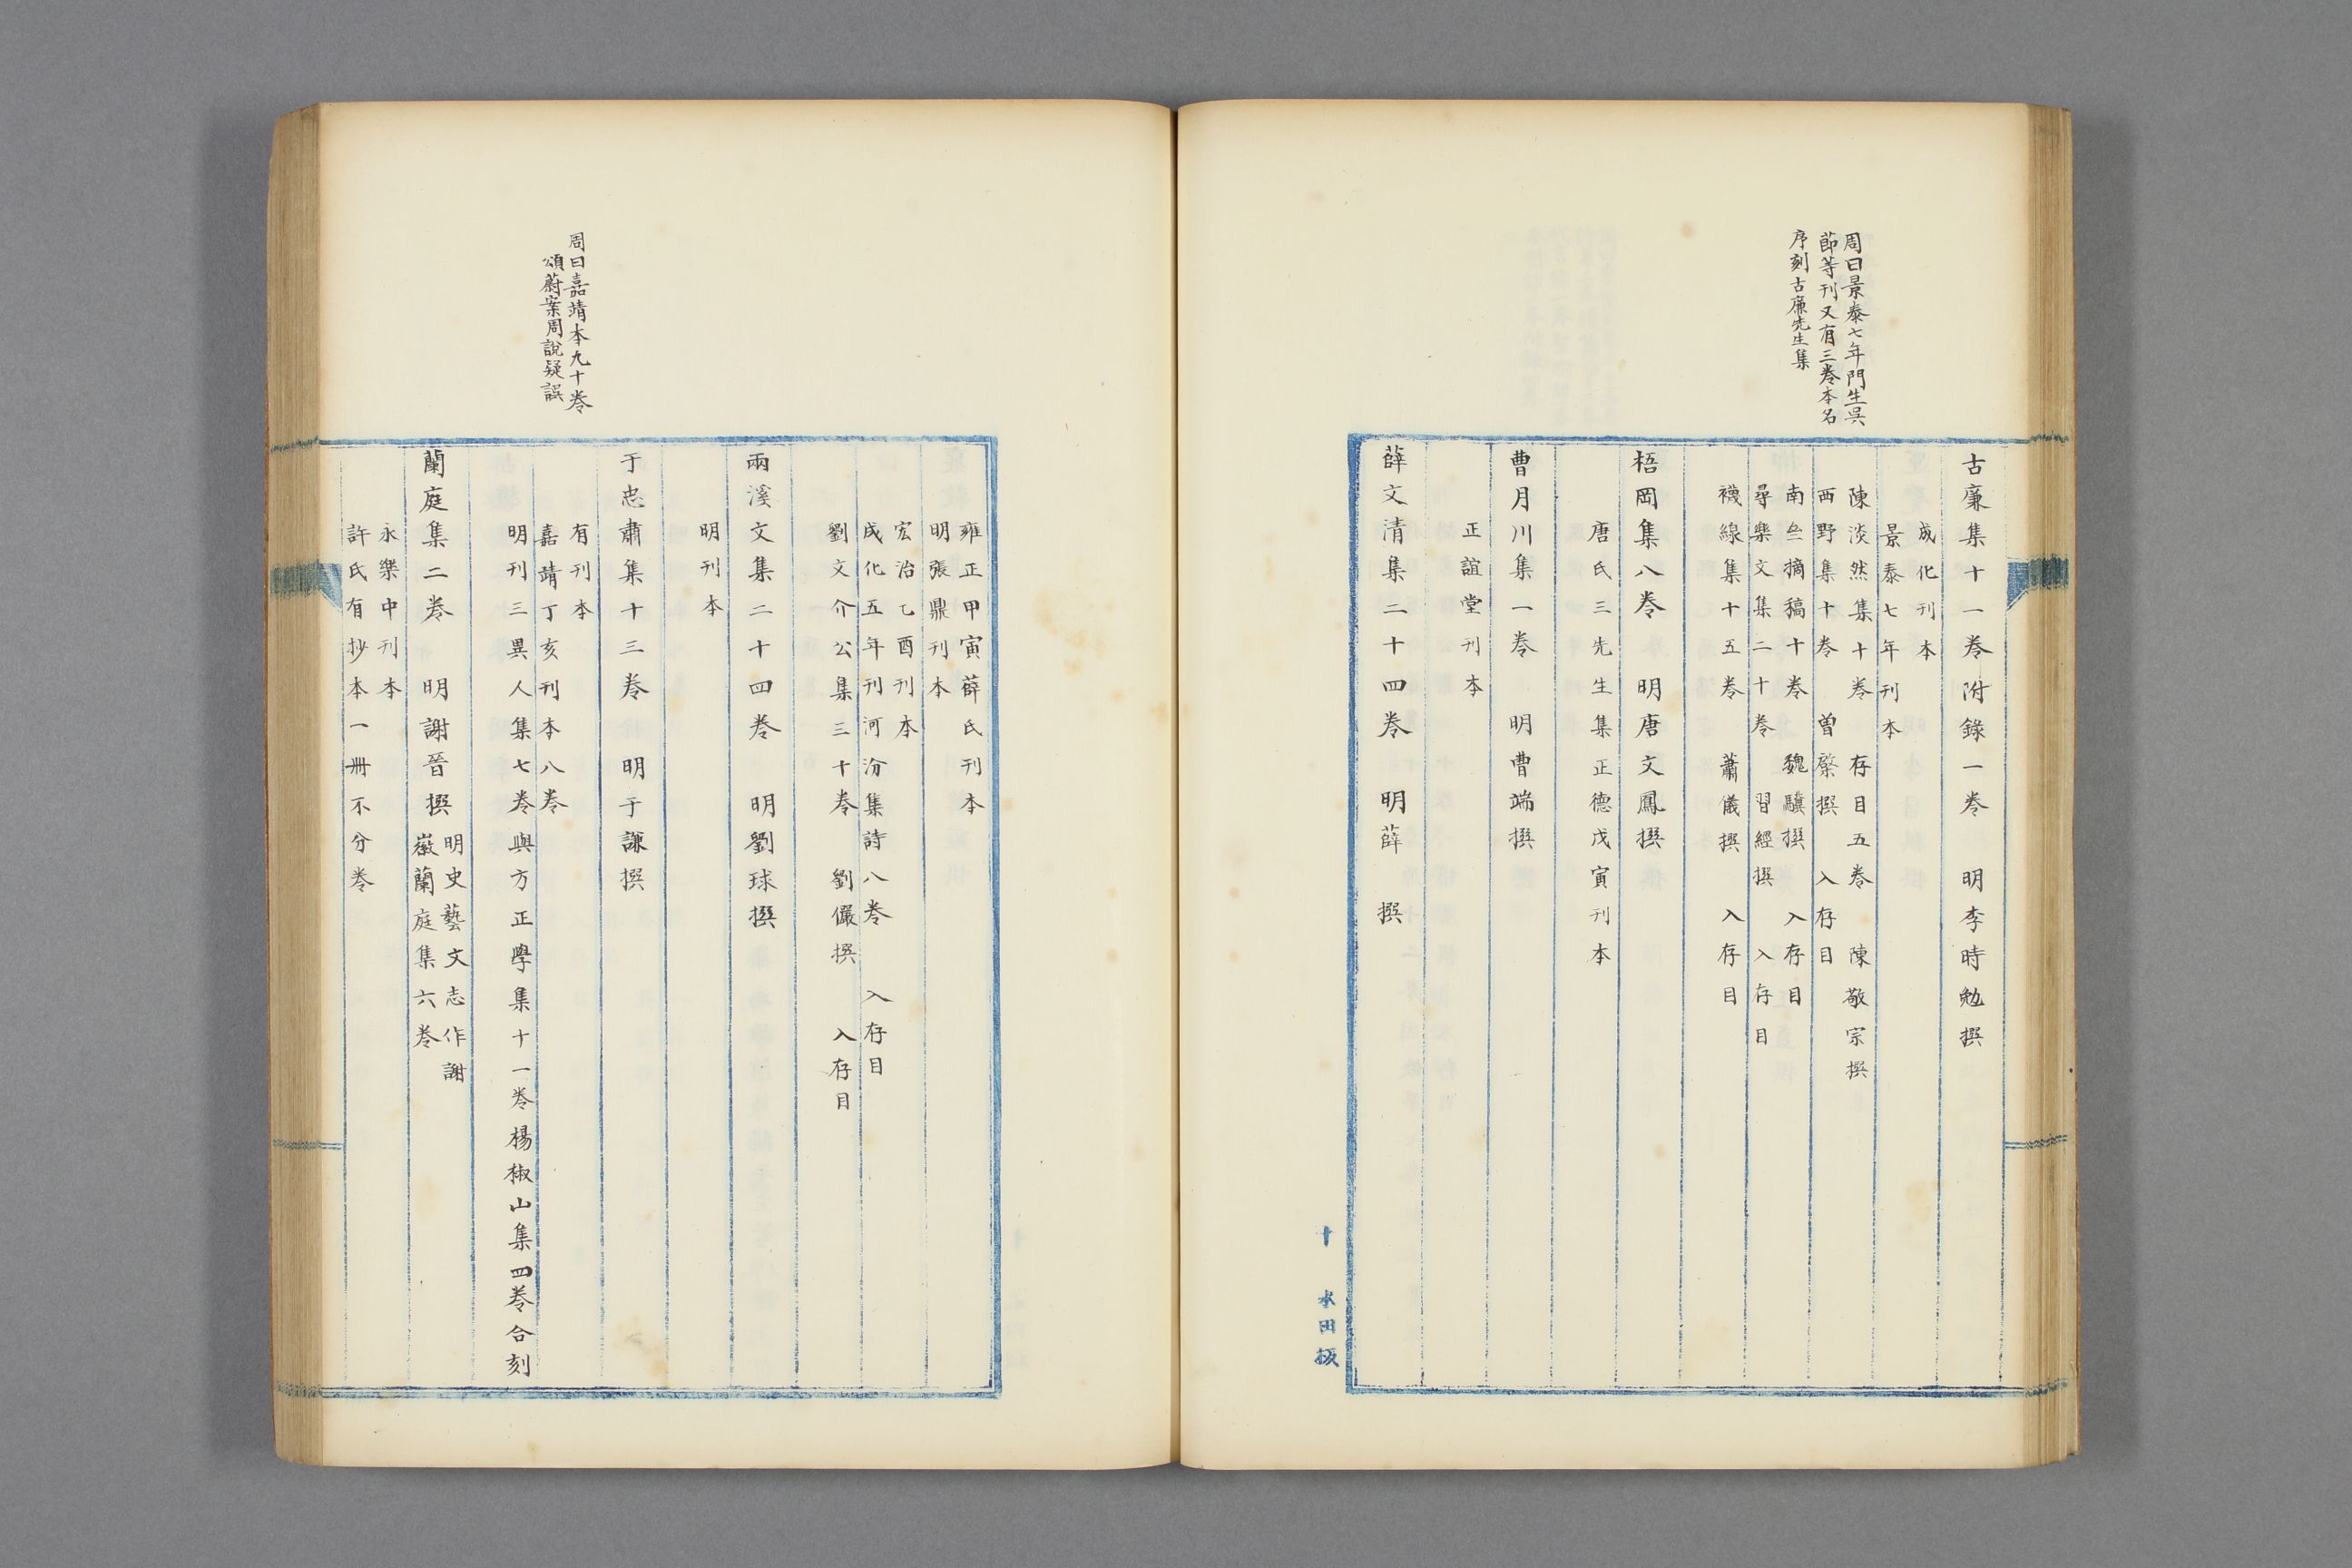 周曰景泰七年門生吳
節等刊又有三卷本名
序刻古廉先生集
古廉集十一卷附錄一卷　明李時勉撰
成化刊本
景泰七年刊本
陳淡然集十卷　存目五卷　陳敬宗撰
西野集十卷　曾棨撰　入存目
南亝摘稿十卷　魏驥撰　入存目
尋樂文集二十卷　習經撰　入存目
襪線集十五卷　蕭儀撰　入存目
梧岡集八卷　明唐文鳳撰
唐氏三先生集正德戊寅刊本
曹月川集一卷　明曹端撰
正誼堂刊本
薛文清集二十四卷　明薛　撰
十　水田板
周曰嘉靖本九十卷
頌蔚案周說疑誤
雍正甲寅薛氏刊本
明張鼎刊本
宏治乙酉刊本
成化五年刊河汾集詩八卷　入存目
劉文介公集三十卷　劉儼撰　入存目
兩溪文集二十四卷　明劉球撰
明刊本
于忠肅集十三卷　明于謙撰
有刊本
嘉靖丁亥刊本八卷
明刊三異人集七卷與方正學集十一卷楊椒山集四卷合刻
蘭庭集二卷　明謝晉撰
明史藝文志作謝
嶶蘭庭集六卷
永樂中刊本
許氏有抄本一冊不分卷